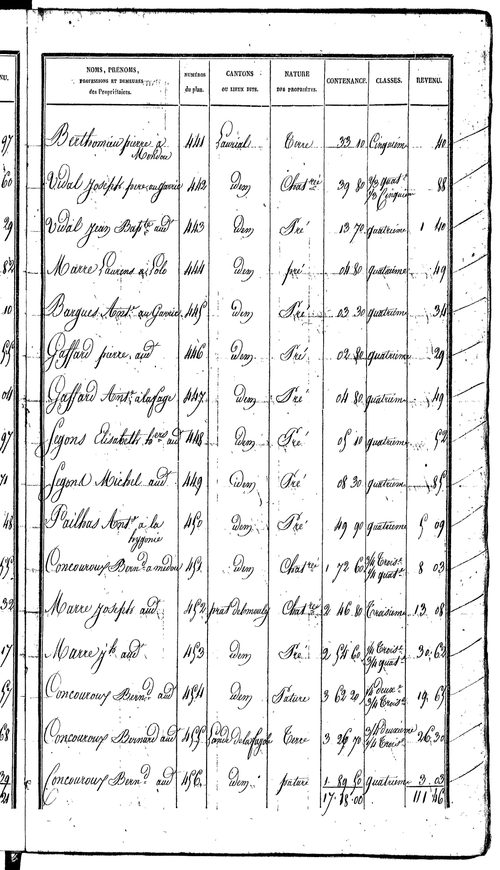 NOMS, PRÉNOMS, PROFESSIONS ET DEMEURES des Propriétaires. NUMÉROS du plan. CANTONS OU LIEUX DITS. NATURE DES PROPRIÉTÉS. CONTENANCE. CLASSES. REVENU.
Berthomieu pierre a 441 Laurial Terre 33 10 Cinquieme 40
Vidal Joseph pere, au Garric 442 idem Chatrie 39 80 2/3 quat. 1/3 Cinquieme 88
Vidal Jean Bapte. aud 443 idem Pré 13 70 quatrieme 1 40
Marre Laurens a Polo 444 idem pré 04 80 quatrieme 49
Bargues Antne. au Garric 445 idem Pré 03 30 quatrieme 34
Gaffard pierre aud 446 idem Pré 02 80 quatrieme 29
Gaffard Antne. a lafage 447 idem Pré 04 80 quatrieme 49
Segons Elisabeth hers aud 448 idem Pré 05 10 quatrieme 52
Segons Michel aud 449 idem Pré 08 30 quatrieme 85
Pailhas Antne. a la 450 idem Pré 49 90 quatrieme 5 09
Concouroux Bernd. 451 idem Chatrie 1 72 60 3/4 Trois. 1/4 quat. 8 03
Marre Joseph aud 452 Chatrie 2 46 80 Troisieme 13 08
Marre jh aud 453 idem Pré 2 54 60 1/4 Trois. 3/4 quat. 30 62
Concouroux Bernd. aud 454 idem Pature 3 62 20 1/4 deux. 3/4 Trois. 19 65
Concouroux Bernard aud 455 Terre 3 26 70 3/4 Deuxieme 1/4 Trois. 26 30
Concouroux Bernd. aud 456 idem pature 1 89 50 quatrieme 3 03
17 18 00 111 46